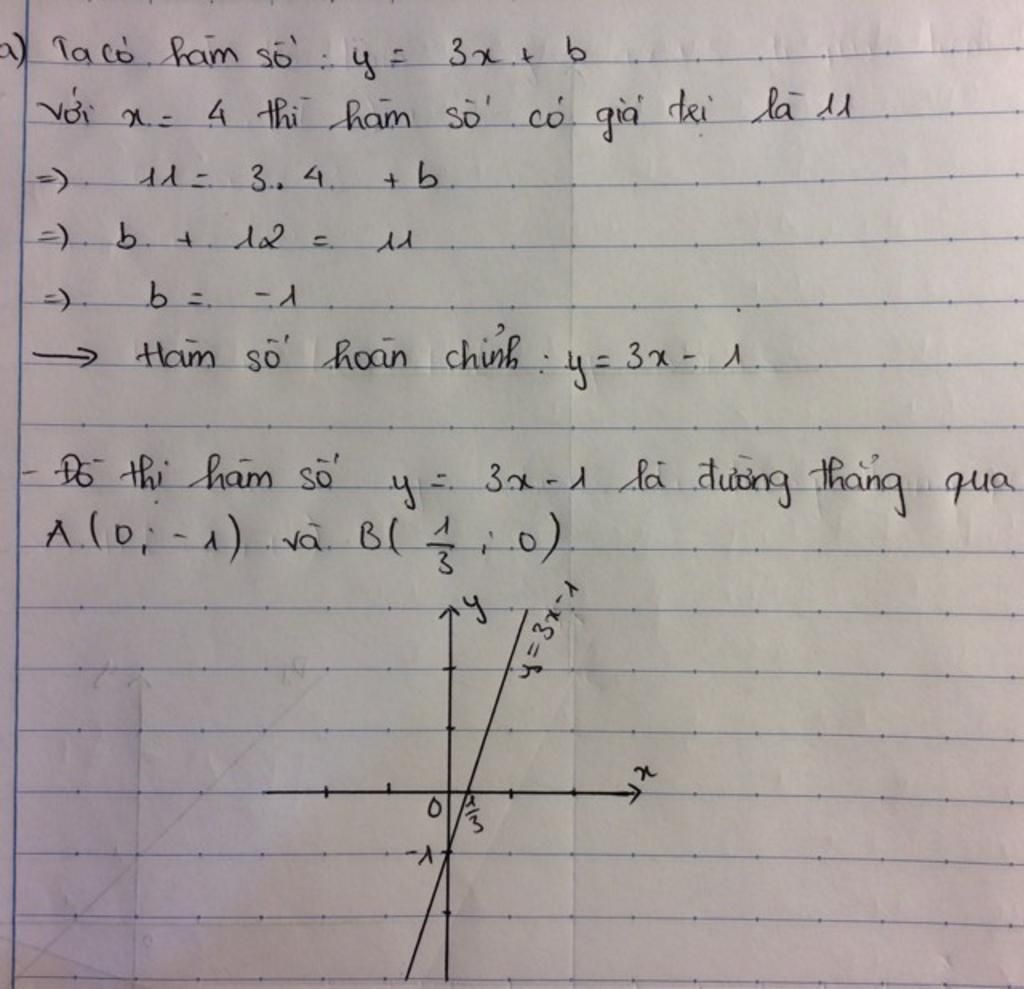 a) Ta có hàm số: y = 3x + b
Với x = 4 thì hàm số có giá trị là 11
=> 11 = 3.4 + b
=> b + 12 = 11
=> b = -1
→ Hàm số hoàn chỉnh: y = 3x - 1
- Đồ thị hàm số y = 3x - 1 là đường thẳng qua
A(0; -1) và B(1/3; 0)
y
y = 3x - 1
x
0
1/3
-1